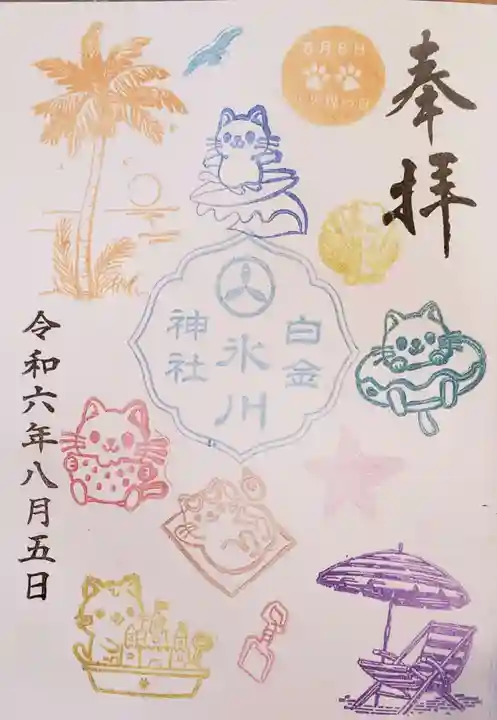 奉拝
8月8日
白金
氷川
神社
令和六年八月五日